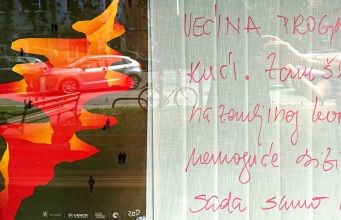 VEĆINA PROGN
KUĆI. Zamiš
na zemljinoj
nemoguće
sada samo